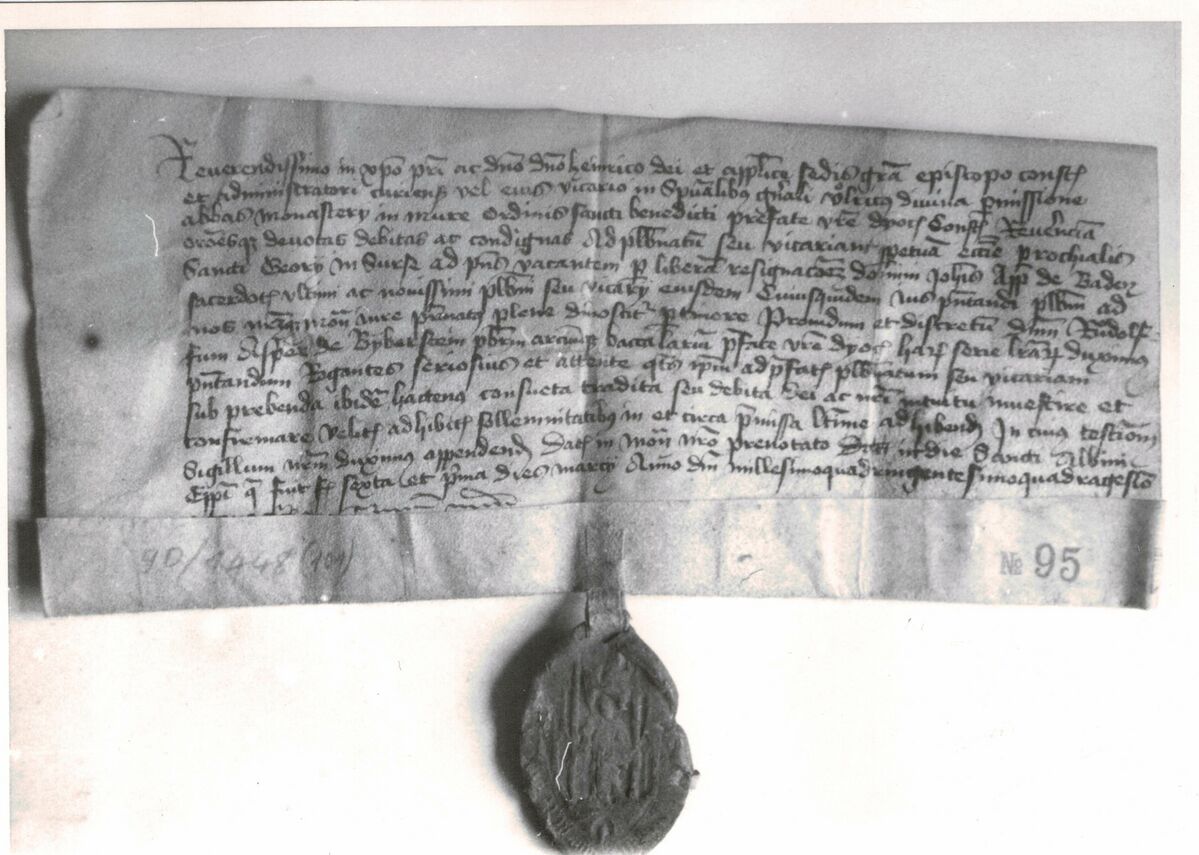 Reverendissimo in xpo pri ac dno dno heinrico dei et applice sedis gra episcopo constn
et administratori curiens vel eius vicario in spualibus gnali vlricus divina pmissione
abbas monastery in mure ordinis sancti benedicti prefate vre dyoc Constn Reverencia
oroesq devotas debitas ac condignas Ad plbnatu seu vicariam ppetua eccie prochialis
Sancti Georij in Surse ad pns vacantem p libera resignacoez domini Johis App de Baden
sacerdot vltimi ac novissimi plbni seu vicarij eiusdem Cuiusquidem ius pntandi plbnu ad
nos nrmqz mon iure pnotato plene dinoscit ptinere Providum et discretu dnm Rudolf
fum Asper de Byberstein pbrm arciumqz baccalariu pfate vre dyoc harz serie lrarz duximus
pntandum Rogantes seriosius et attente qts ipm ad pfat plbnatum seu vicariam
sub prebenda ibide hactenus consueta tradita seu debita dei ac nri intuitu investire et
confirmare velit adhibit sollemnitatibus in et circa pmissa ltime adhibend In cuius testiom
Sigillum nrm duximus appendend Dat in mon nro prenotato in die Sancti Albini
Epi q fuit fr sexta et pma dies marcij Anno dni millesimoquadringentesimoquadragesio
90/1448 (101)
№ 95